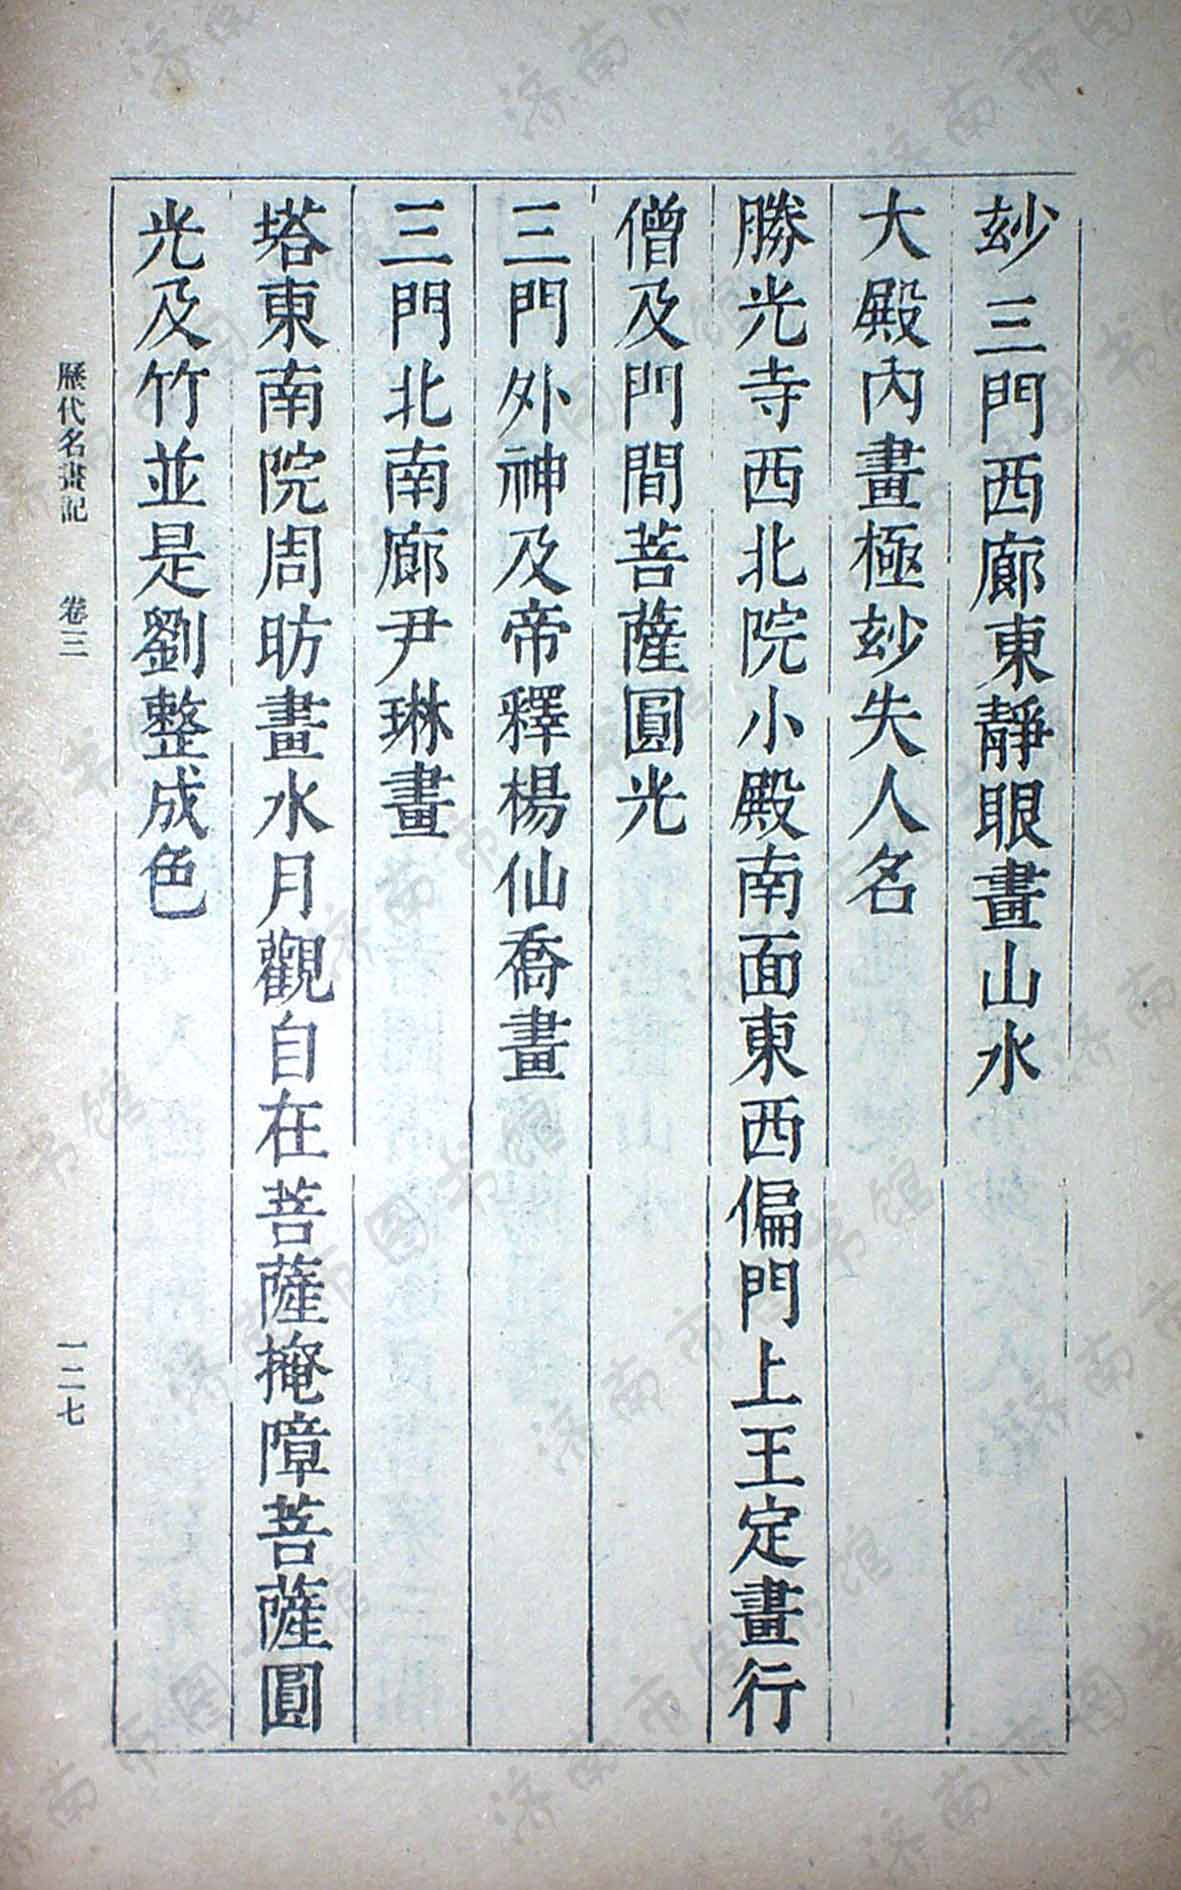 玅三門西廊東靜眼畫山水
大殿內畫極玅失人名
勝光寺西北院小殿南面東西偏門上王定畫行
僧及門間菩薩圓光
三門外神及帝釋楊仙喬畫
三門北南廊尹琳畫
塔東南院周昉畫水月觀自在菩薩掩障菩薩圓
光及竹並是劉整成色
歷代名畫記 卷三 一二七